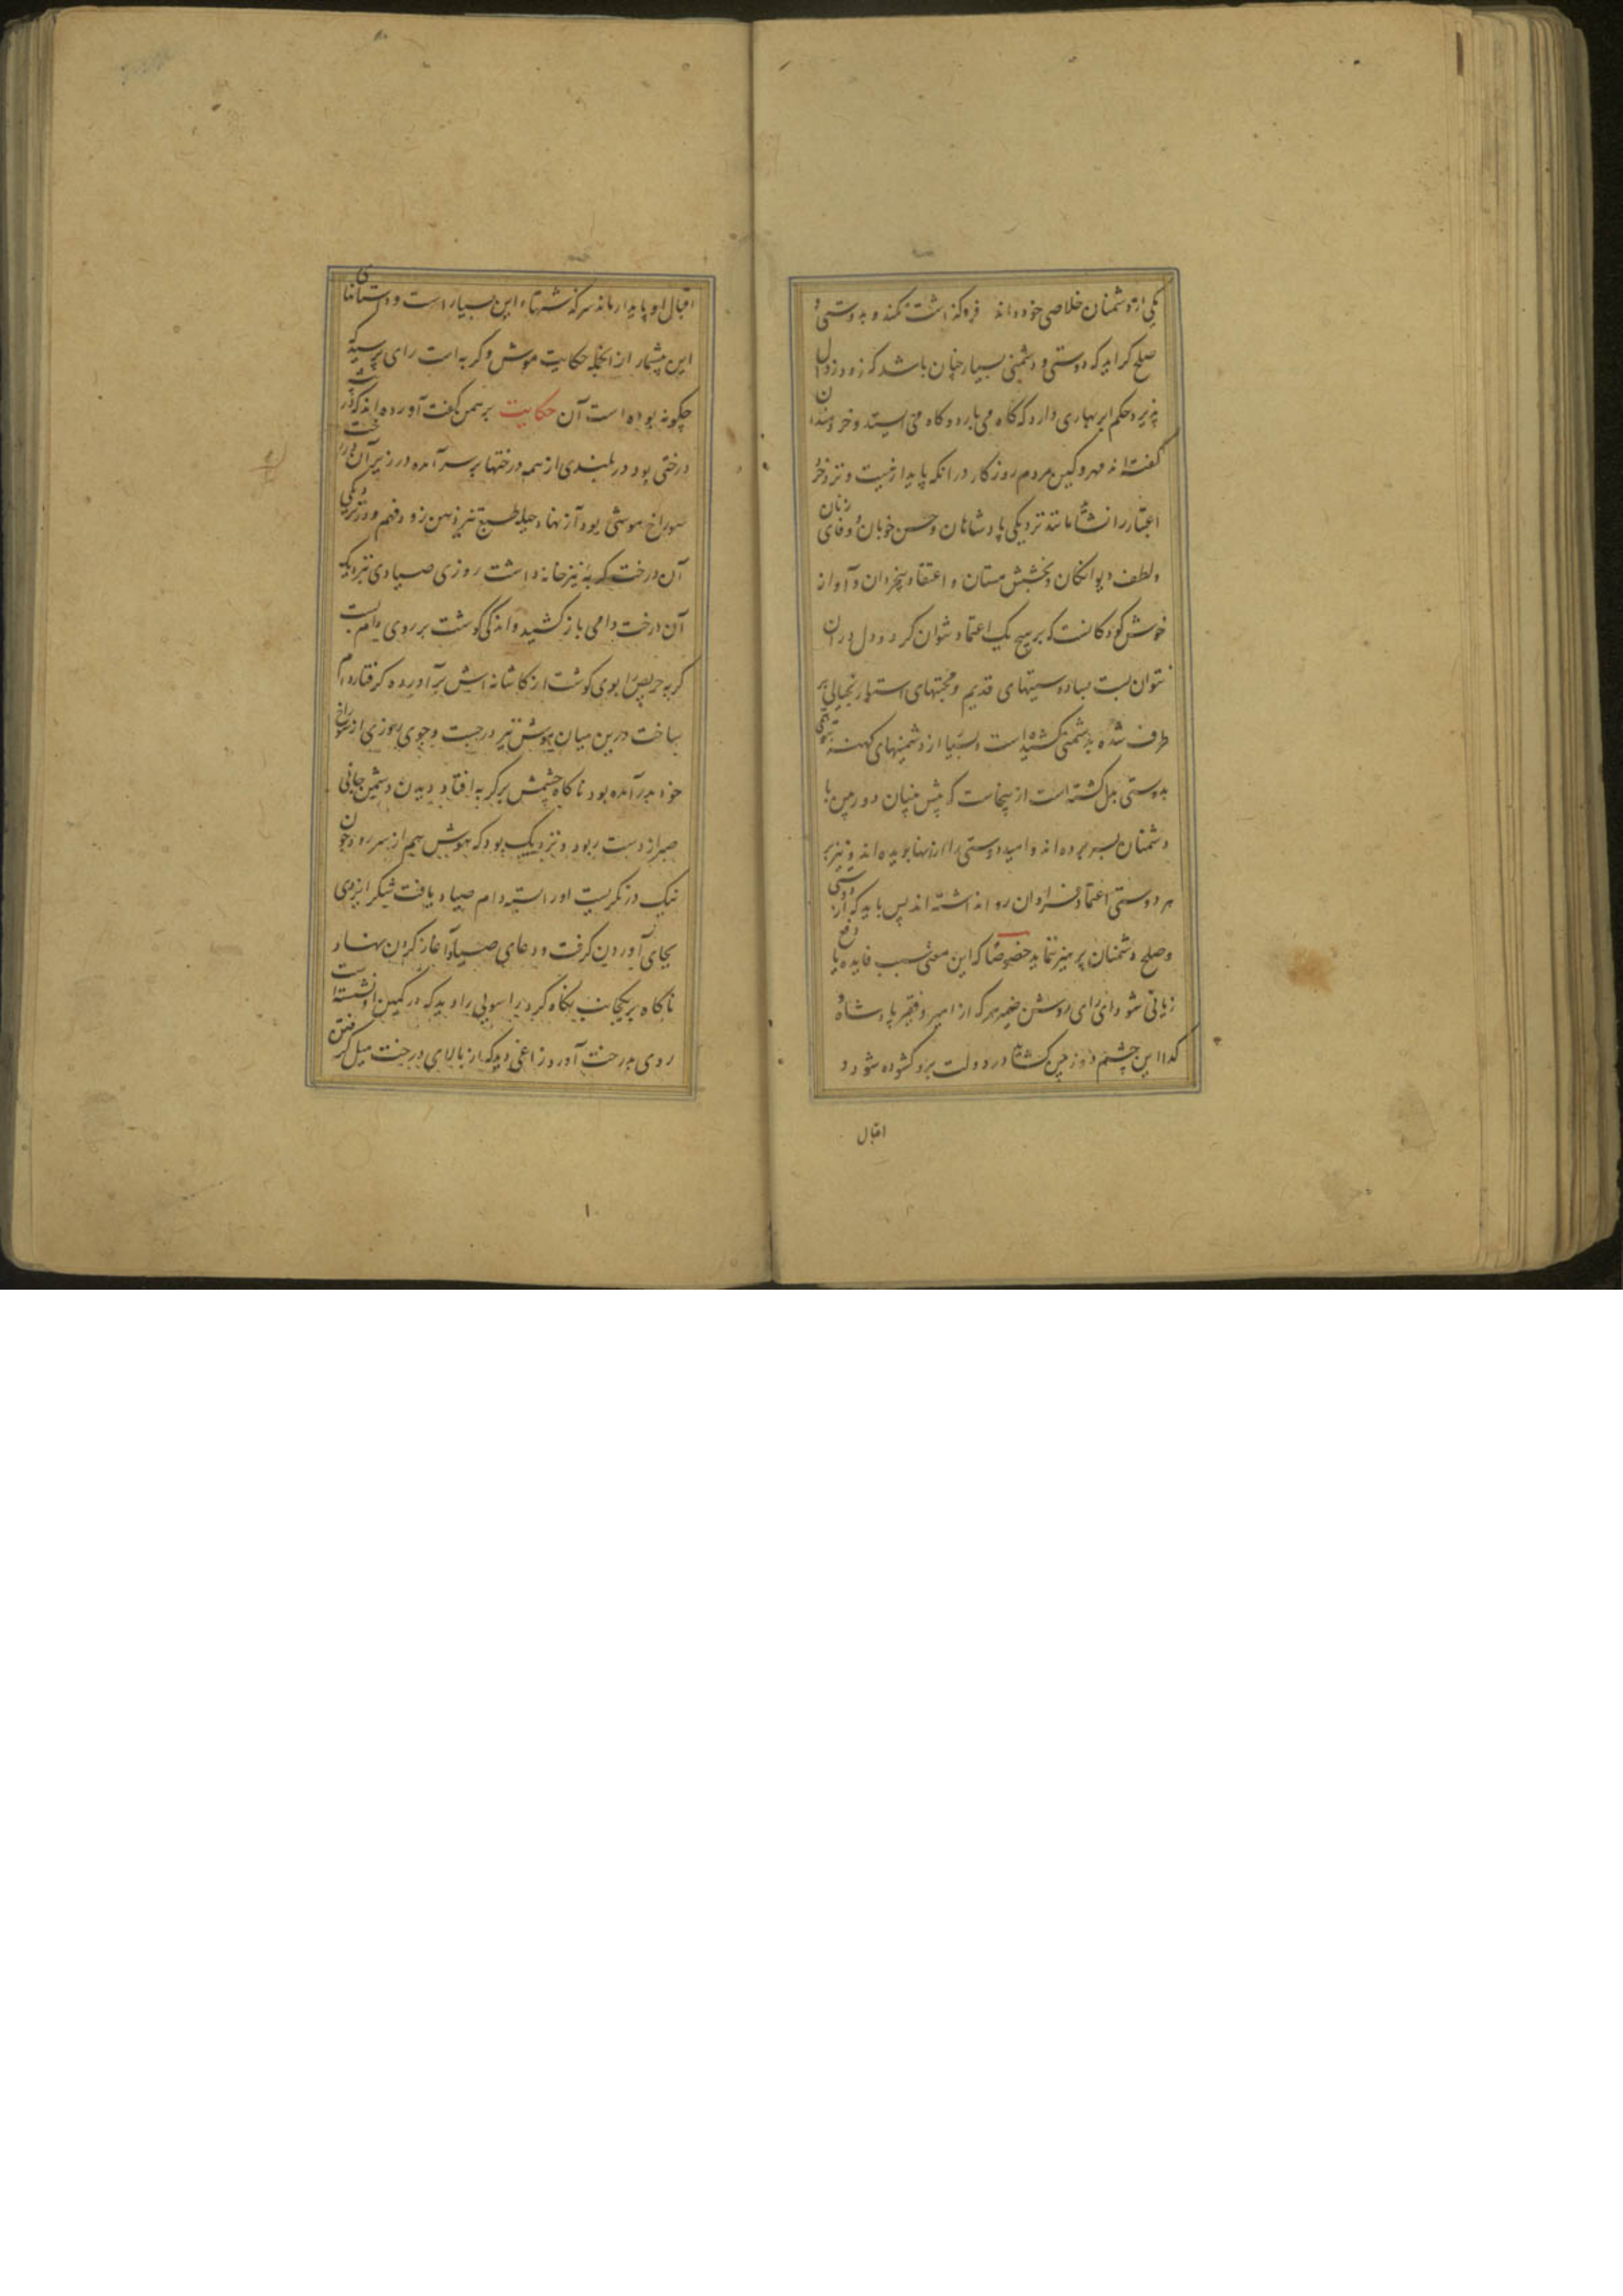 یکی از دشمنان خلاصی خود داند فرو گذاشت نکند و بدوستی و
صلح گراید که دوستی و دشمنی بسیار چنان باشد که زود زوال
پذیرد حکم ابر بهاری دارد که گاه می بارد و گاه می ایستد و خردمندان
گفته اند مهر و کین مردم روزگار در آنکه پایدار نیست و نزد خرد
اعتبار را نشاید مانند نزدیکی پادشاهان و حسن خوبان و وفای زنان
و لطف دیوانگان و بخشش مستان و اعتقاد بیخردان و آواز
خوش کودکانست که بر هیچ یک اعتماد نتوان کرد و دل در آن
نتوان بست بسا دوستیهای قدیم و محبتهای استوار
طرف شده بدشمنی کشیده است و بسیار از دشمنیهای کهنه
بدوستی بدل گشته است ازینجاست که پیش بینان دوربین با
دشمنان بسر برده اند و امید دوستی را از آنها نبریده اند و نیز بر
هر دوستی اعتماد فراوان روا نداشته اند پس باید که از دوستی
و صلح دشمنان پرهیز ننماید خصوصا که این معنی سبب فایده یا دفع
زیانی شود و ای رای روشن ضمیر هر که از امیر و فقیر پادشاه و
گدا این چشم دوربین گشاید در دولت برو گشوده شود و
اقبال
اقبال او پایدار ماند سرگذشتهاء این بسیار است و داستانهای
این بیشمار از آنجمله حکایت موش و گربه است رای پرسید که
چگونه بوده است آن حکایت برهمن گفت آورده اند که در
درختی بود در بلندی از همه درختها بر سر آمده در زیر آن درخت
سوراخ موشی بود آزنهاد حیله طبع تیز ذهن زود فهم و در نزدیکی
آن درخت گربه نیز خانه داشت روزی صیادی نزدیک
آن درخت دامی باز کشید و اندکی گوشت بر روی دام بست
گربه حریص را بوی گوشت از کاشانه اش برآورده گرفتار دام
ساخت درین میان موش نیز در جست و جوی روزی از سوراخ
خود بدر آمده بود ناگاه چشمش بر گربه افتاد دیدن دشمن جانی
صبر از دست ربود و نزدیک بود که هوش هم از سر رود چون
نیک در نگریست او را بسته دام صیاد یافت شکر ایزدی
بجای آوردن گرفت و دعای صیاد را آغاز کردن نهاد
ناگاه بر یکجانب نگاه کرد راسویی را دید که در کمین او نشسته است
روی بدرخت آورد زاغی دید که از بالای درخت میل گرفتن